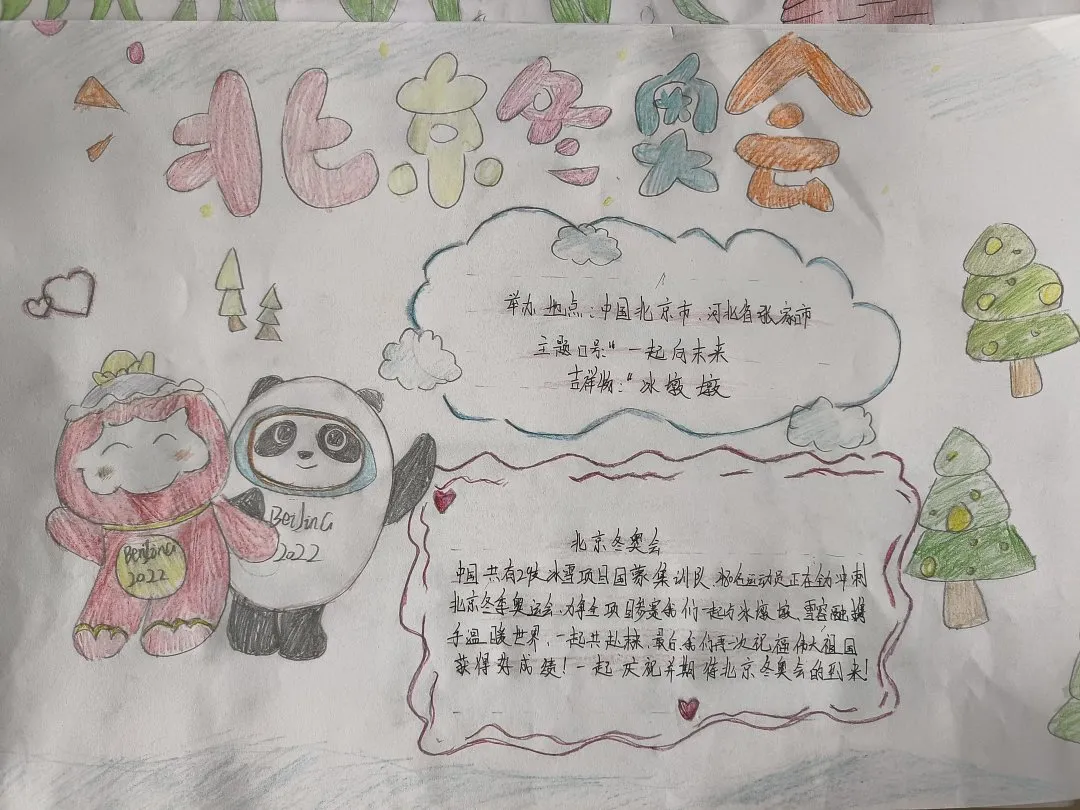 北京冬奥会
举办地点：中国北京市、河北省张家市
主题口号“一起向未来
吉祥物：“冰墩墩
BeiJinG
2022
BeiJinG
2022
北京冬奥会
中国共有 冰雪项目国 集训队 运动员正在 冲刺
北京冬季奥运会，力争全项目参赛我们一起与冰墩墩，雪容融携
手温暖世界，一起共赴 ，最后我们再一次祝福伟大祖国
获得好成绩！一起庆祝并期待北京冬奥会的到来！